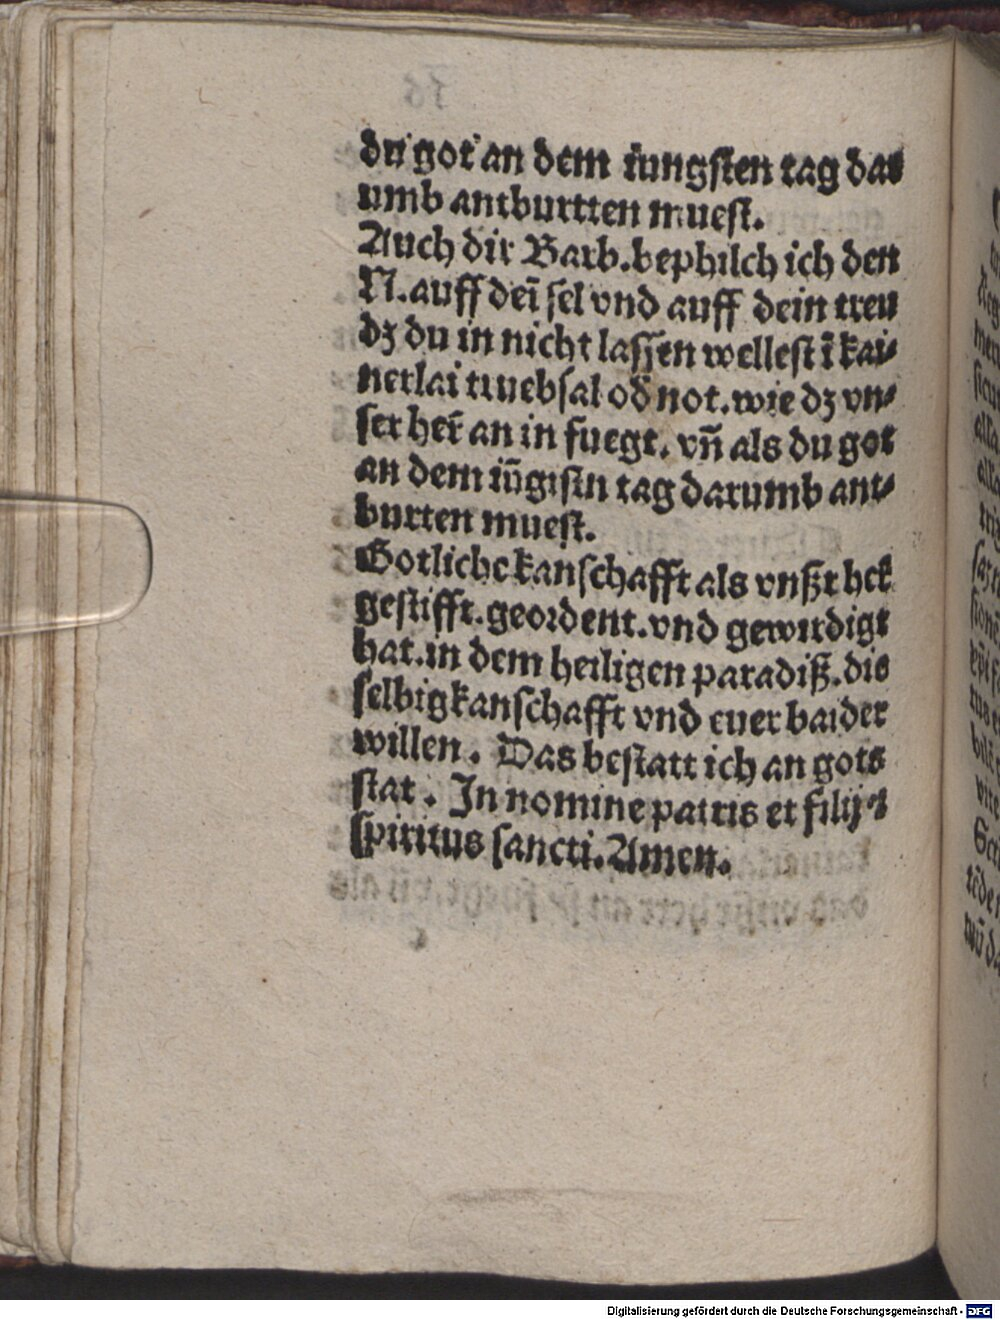 du got an dem iungsten tag das
umb antburtten muest.
Auch dir Barb. bephilch ich den
N. auff dei͞ sel vnd auff dein treu
dʒ du in nicht lassen wellest i͞ kai⸗
nerlai truebsal od̄ not. wie dʒ vn⸗
ser her͞ an in fuegt. vn͞ als du got
an dem iu͞gistn tag darumb ant⸗
burten muest.
Gotliche kanschafft als vnßr her
gestifft. geordent. vnd gewirdigt
hat. in dem heiligen paradiß. die
selbig kanschafft vnd euer baider
willen. Das bestatt ich an gots
stat. In nomine patris et filij ⁊
spiritus sancti. Amen.
Digitalisierung gefördert durch die Deutsche Forschungsgemeinschaft - DFG